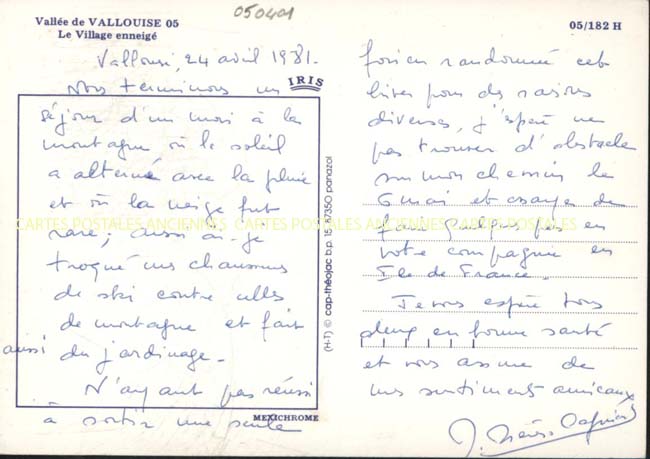 050401
Vallée de VALLOUISE 05
Le Village enneigé
05/182 H
Vallouise, 24 avril 1981.
Nous terminons un
IRIS
séjour d'un mois à la
montagne où le soleil
a alterné avec la pluie
et où la neige fut
rare; aussi ai-je
troqué mes chaussures
de ski contre celles
de montagne et fait
aussi du jardinage.
N'ayant pas réussi
à sortir une seule
MEXICHROME
(H-T) © cap-théojac b.p. 15 - 87350 panazol
CARTES POSTALES ANCIENNES CARTES POSTALES ANCIENNES CARTES POSTALES ANCIENNES
fois en randonnée cet
hiver pour des raisons
diverses, j'espère ne
pas trouver d'obstacle
sur mon chemin le
6 mai et essayer de
faire quelques pas en
votre compagnie en
Ile de France.
Je vous espère tous
deux en bonne santé
et vous assure de
mes sentiments amicaux
J.